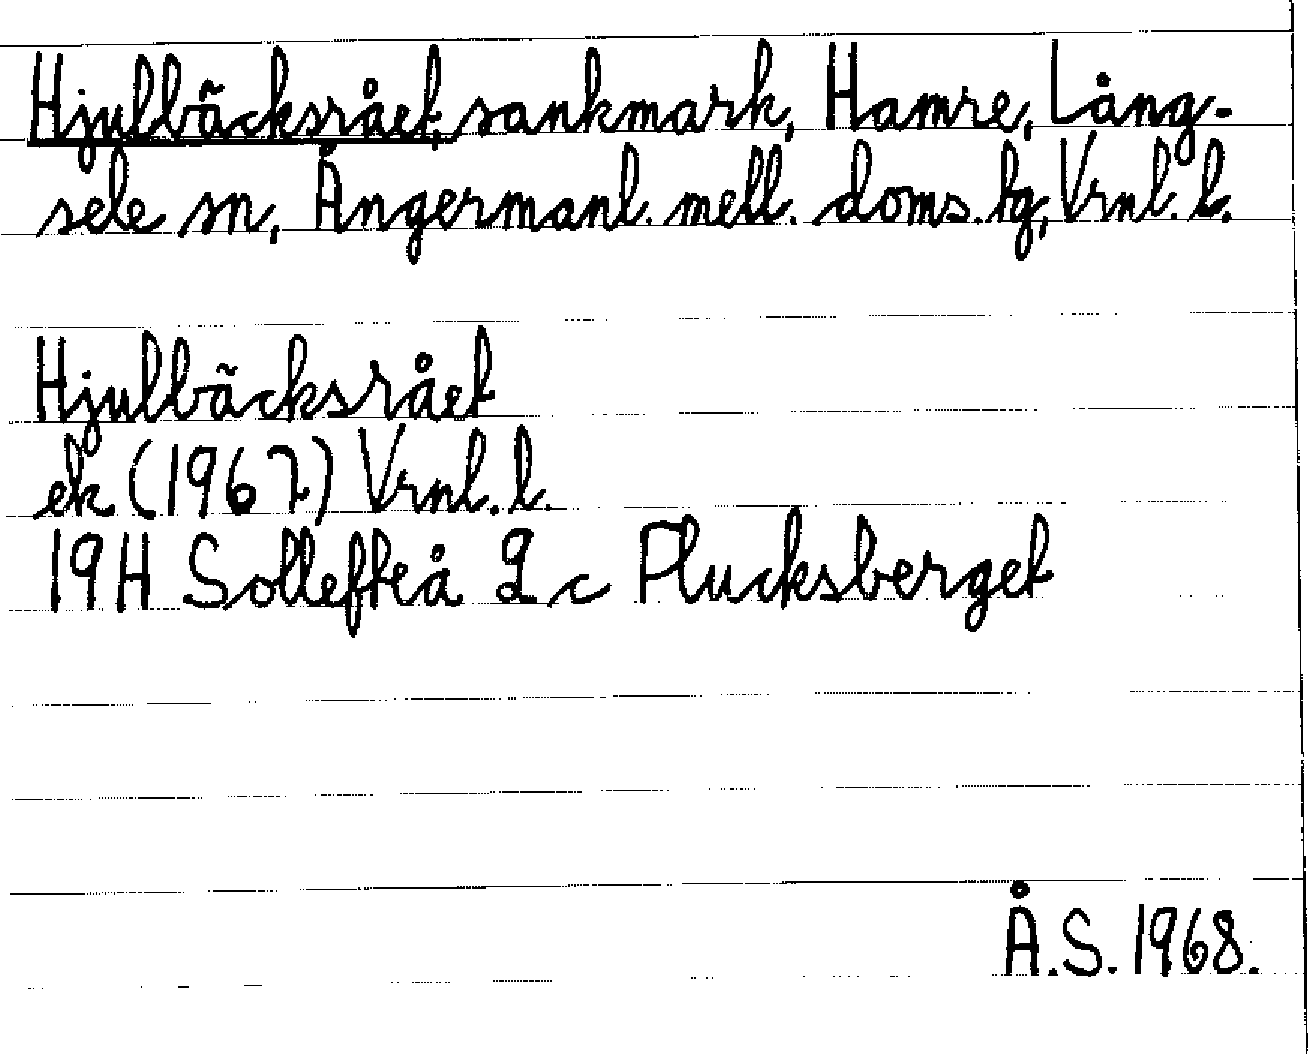 Hjulbäcksrået, sankmark, Hamre, Lång-
sele sn, Ångermanl. mell. doms. tg, Vrnl. l.
Hjulbäcksrået
ek (1967) Vrnl. l.
19H Sollefteå 2 c Plucksberget
Å.S. 1968.